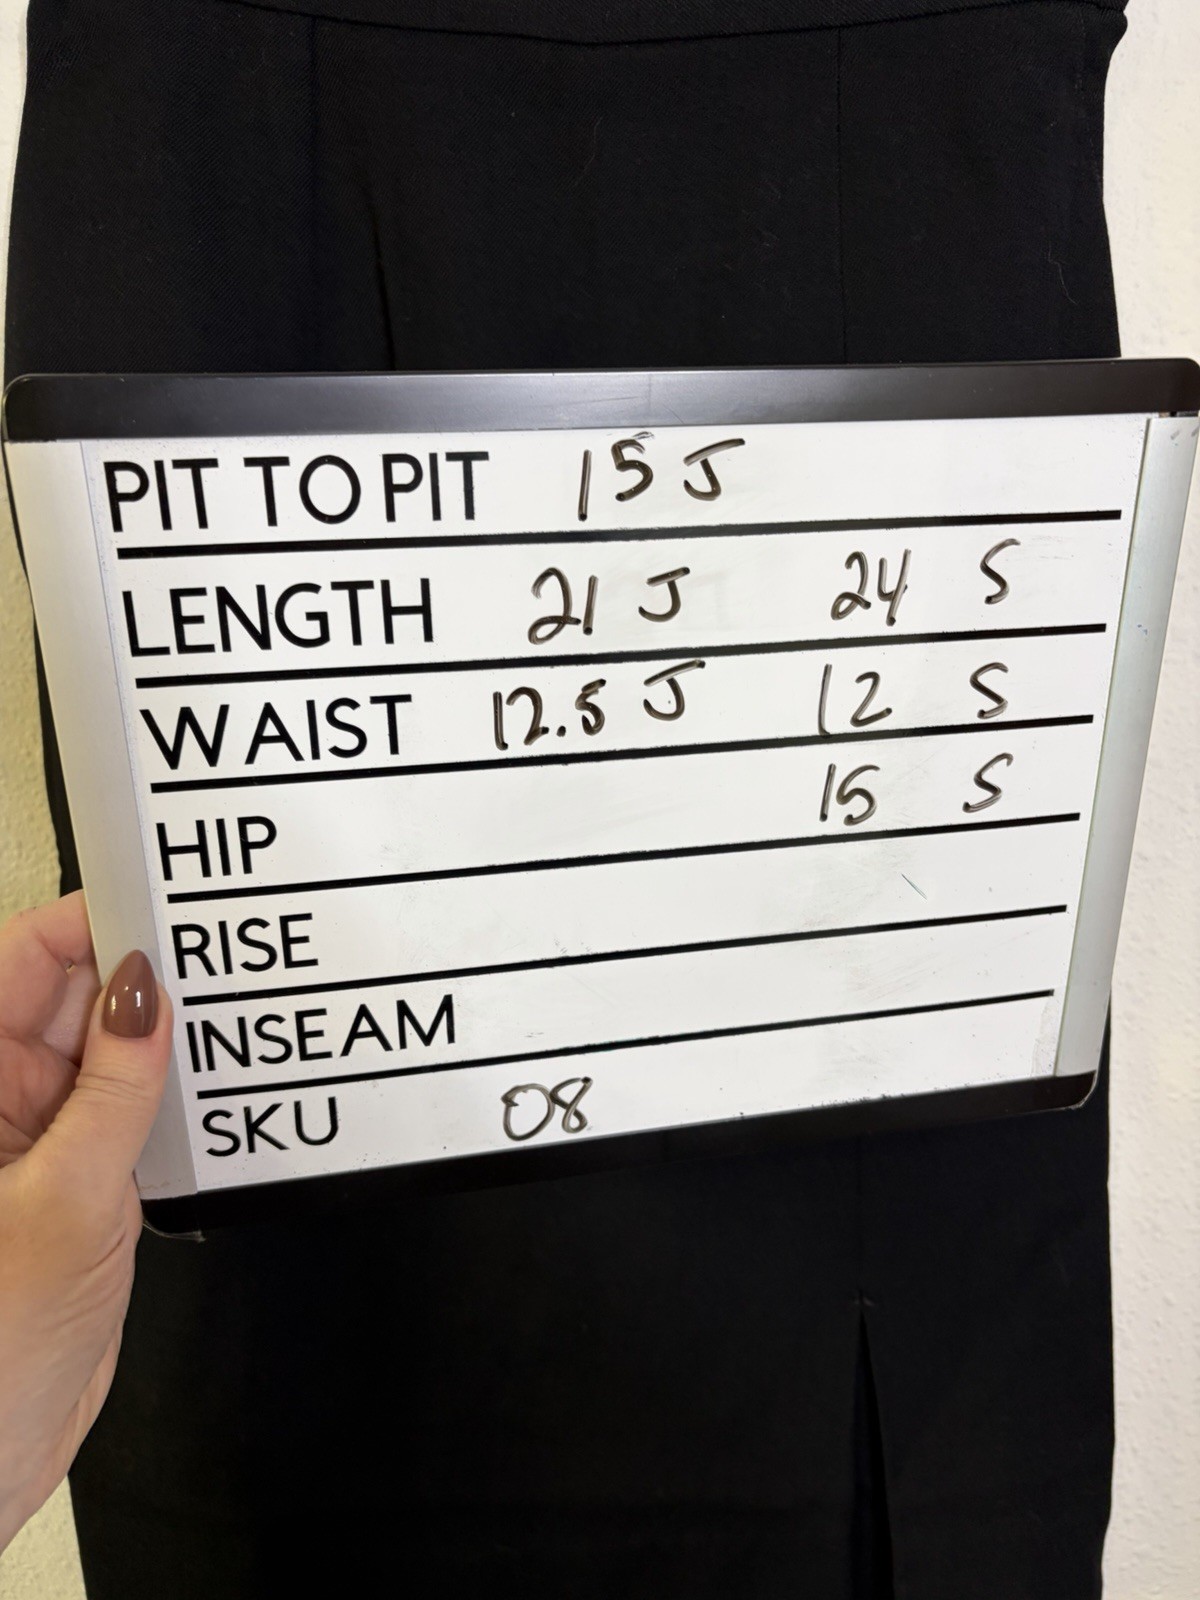 PIT TO PIT 15 J
LENGTH 21 J 24 S
WAIST 12.5 J 12 S
HIP 15 S
RISE
INSEAM
SKU 08